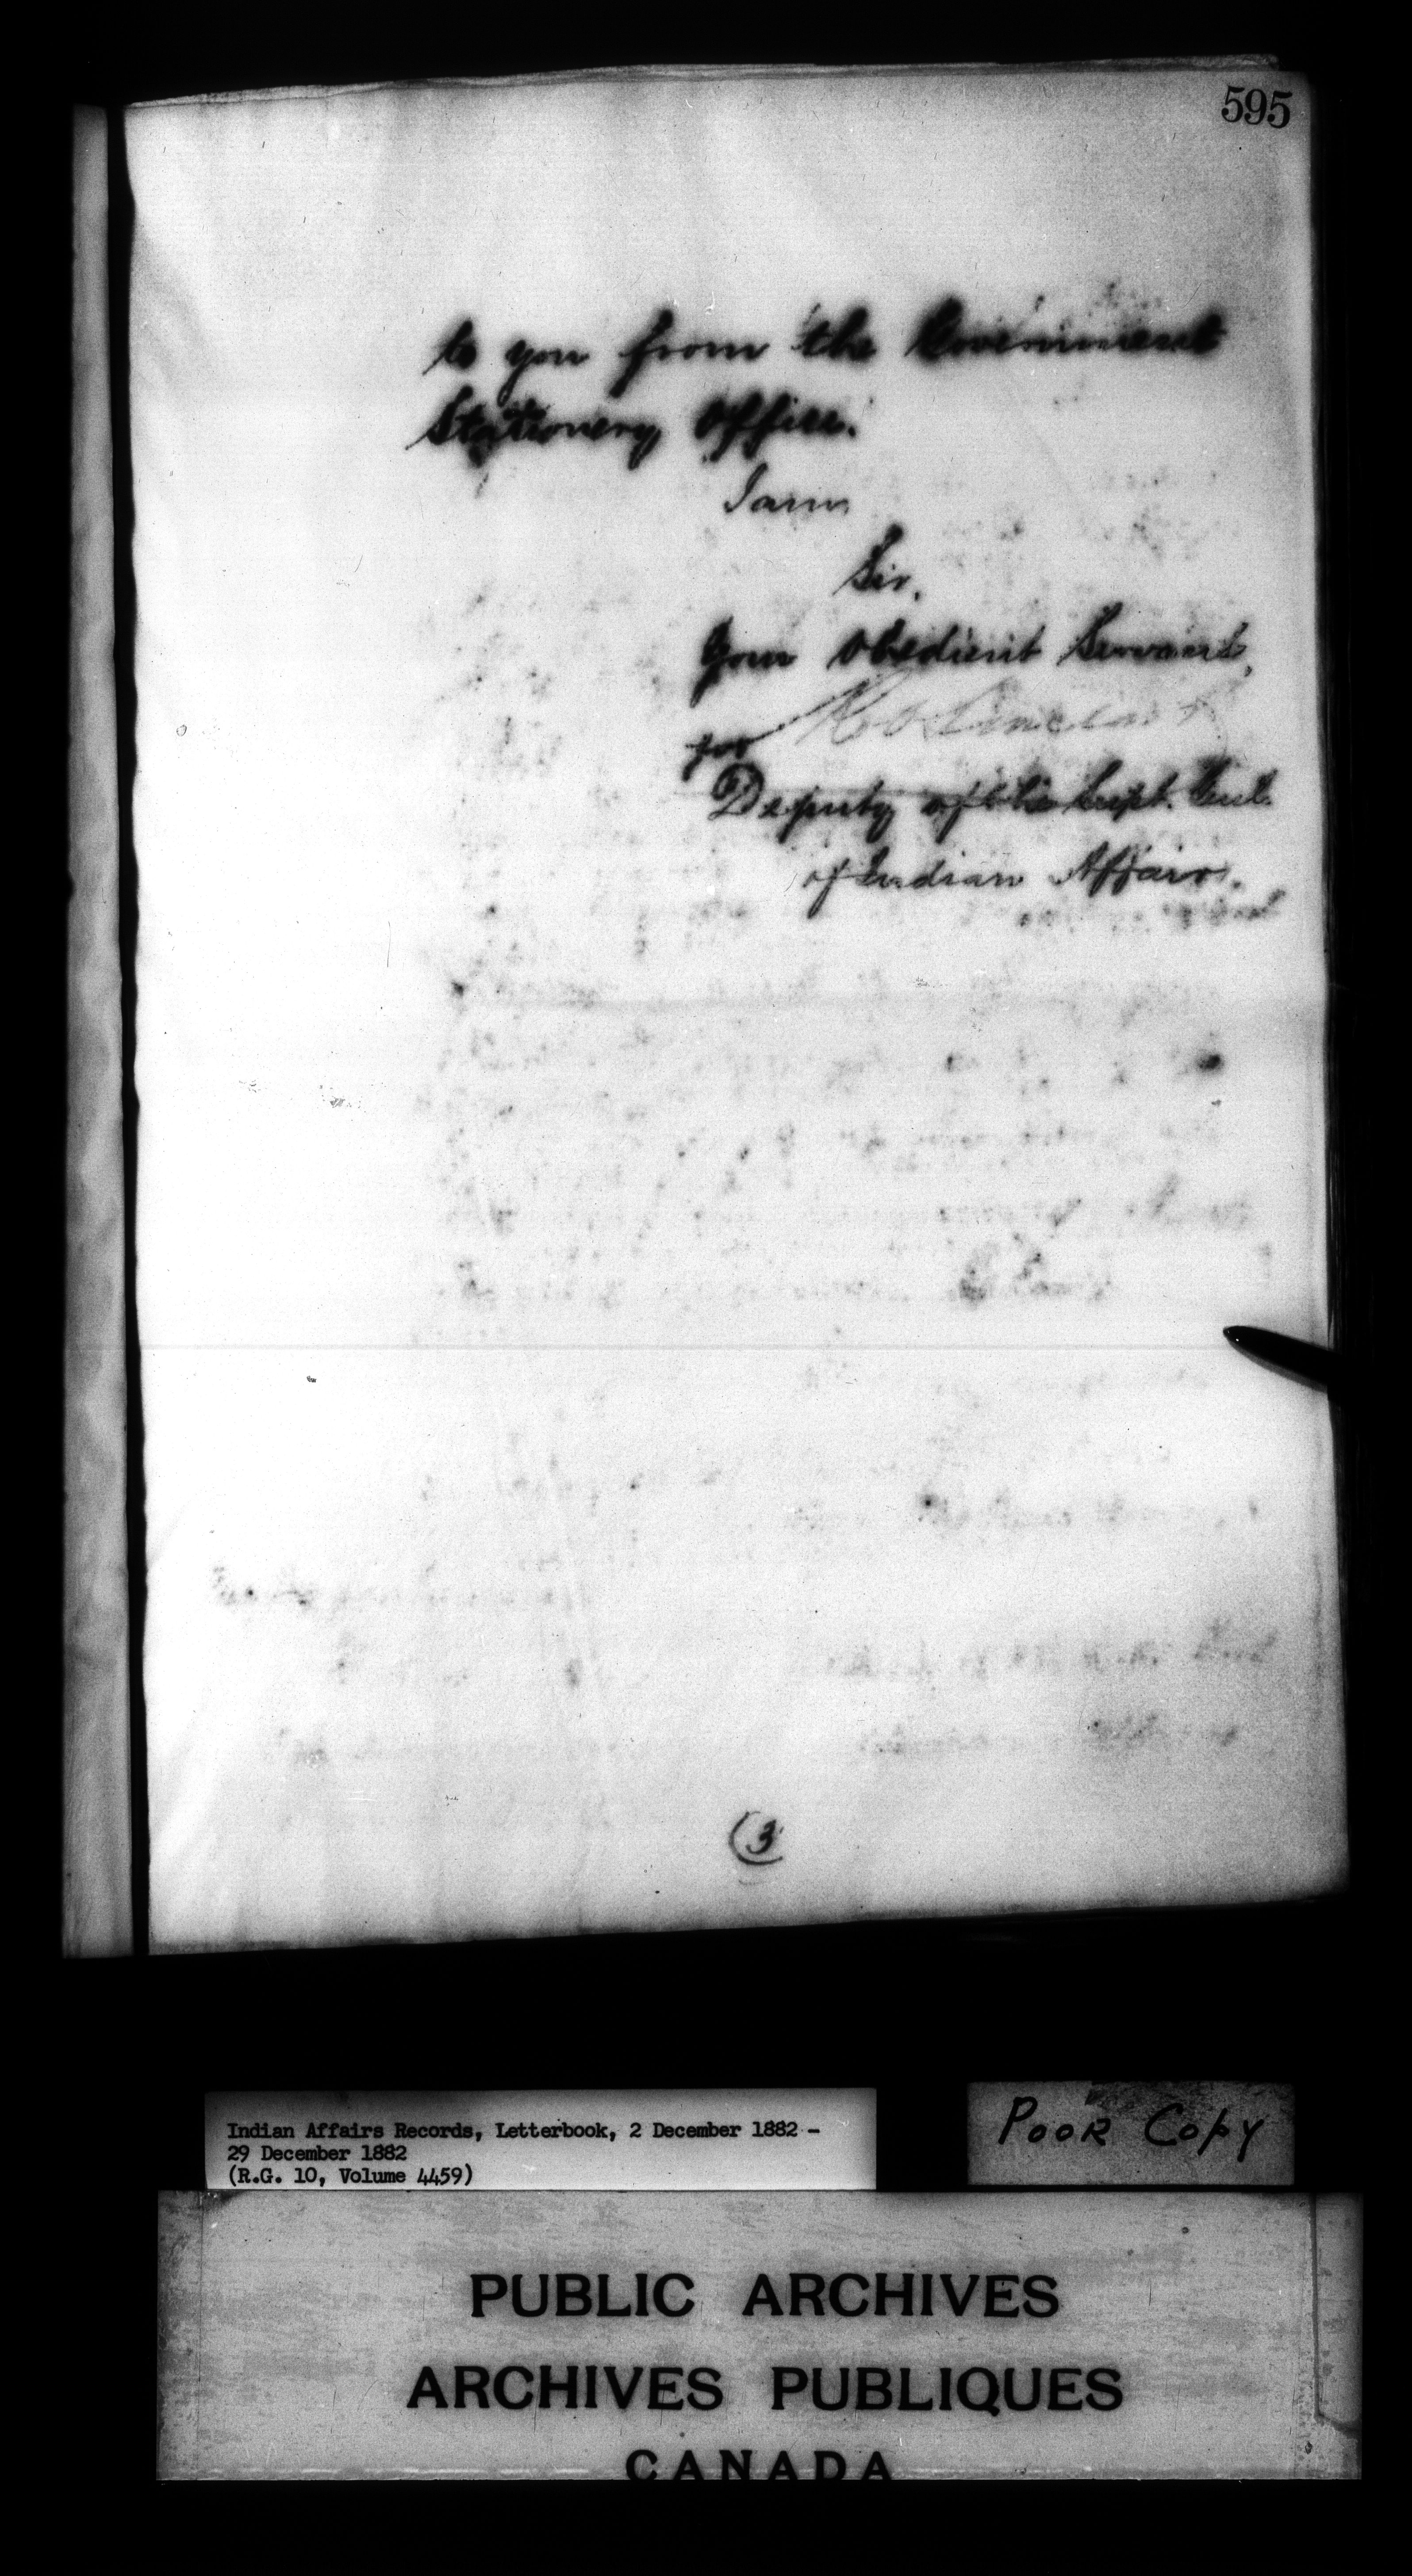 595
to you from the Government
Stationery Office.
I am
Sir,
Your obedient Servant,
for Sinclair
Deputy of the Supt. Genl.
of Indian Affairs.
(3
Indian Affairs Records, Letterbook, 2 December 1882 -
29 December 1882
(R.G. 10, Volume 4459)
POOR COPY
PUBLIC ARCHIVES
ARCHIVES PUBLIQUES
CANADA